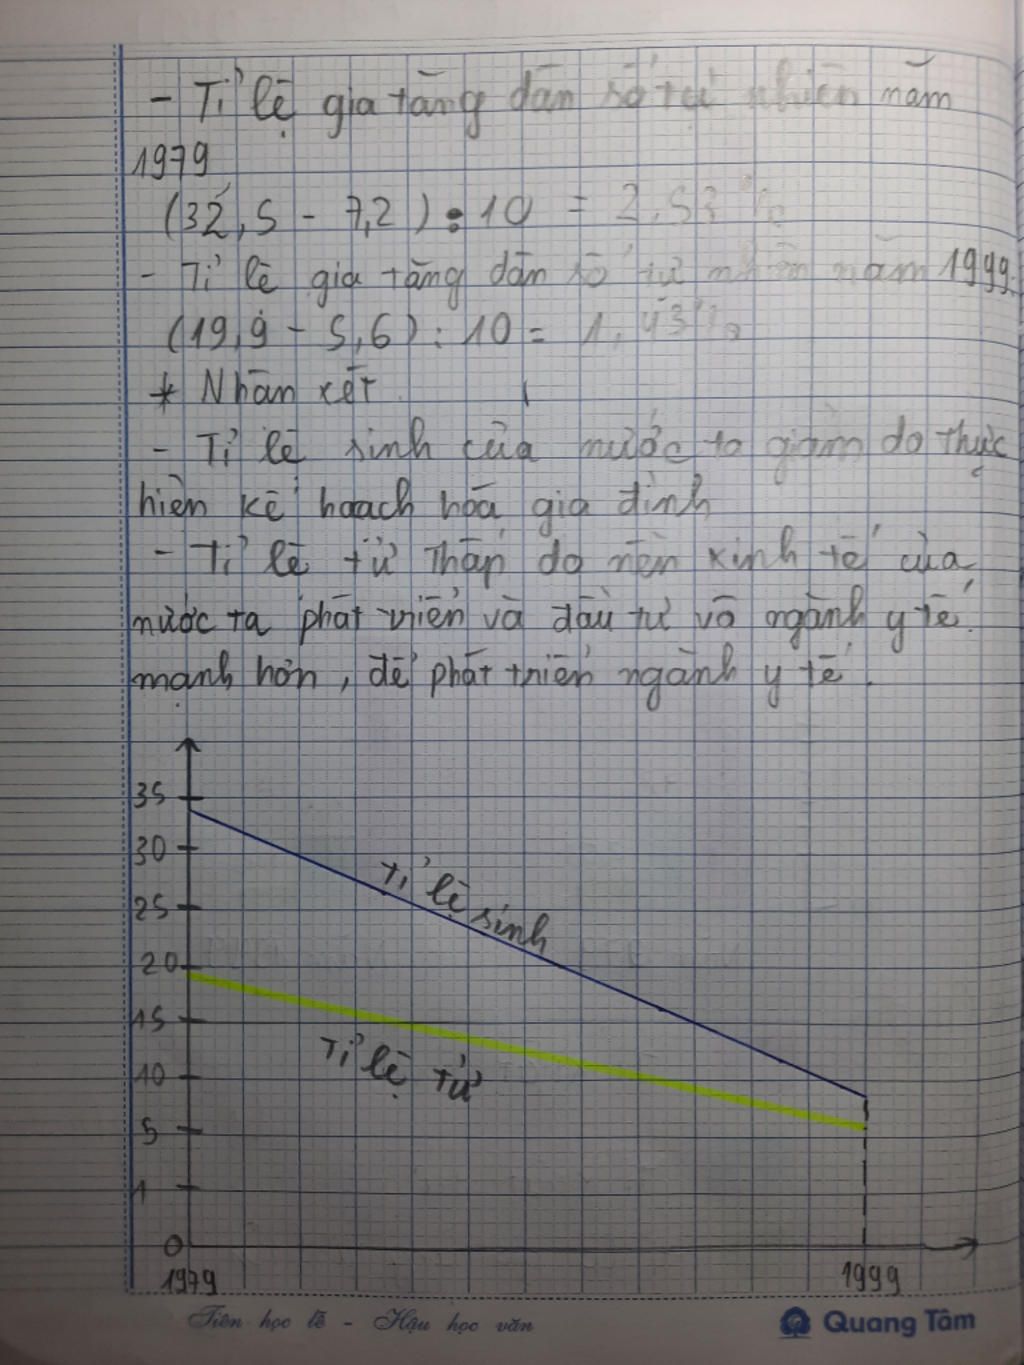 - Tỉ lệ gia tăng dân số tự nhiên năm
1979
(32,5 - 7,2) : 10 = 2,53%
- Tỉ lệ gia tăng dân số tự nhiên năm 1999
(19,9 - 5,6) : 10 = 1,43%
* Nhận xét
- Tỉ lệ sinh của nước ta giảm do thực
hiện kế hoạch hóa gia đình
- Tỉ lệ tử thấp do nền kinh tế của
nước ta phát triển và đầu tư vô ngành y tế
mạnh hơn, để phát triển ngành y tế.
35
30
Tỉ lệ sinh
25
20
15
Tỉ lệ tử
10
5
1
0
1979 1999
Tiên học lễ - Hậu học văn
Quang Tâm